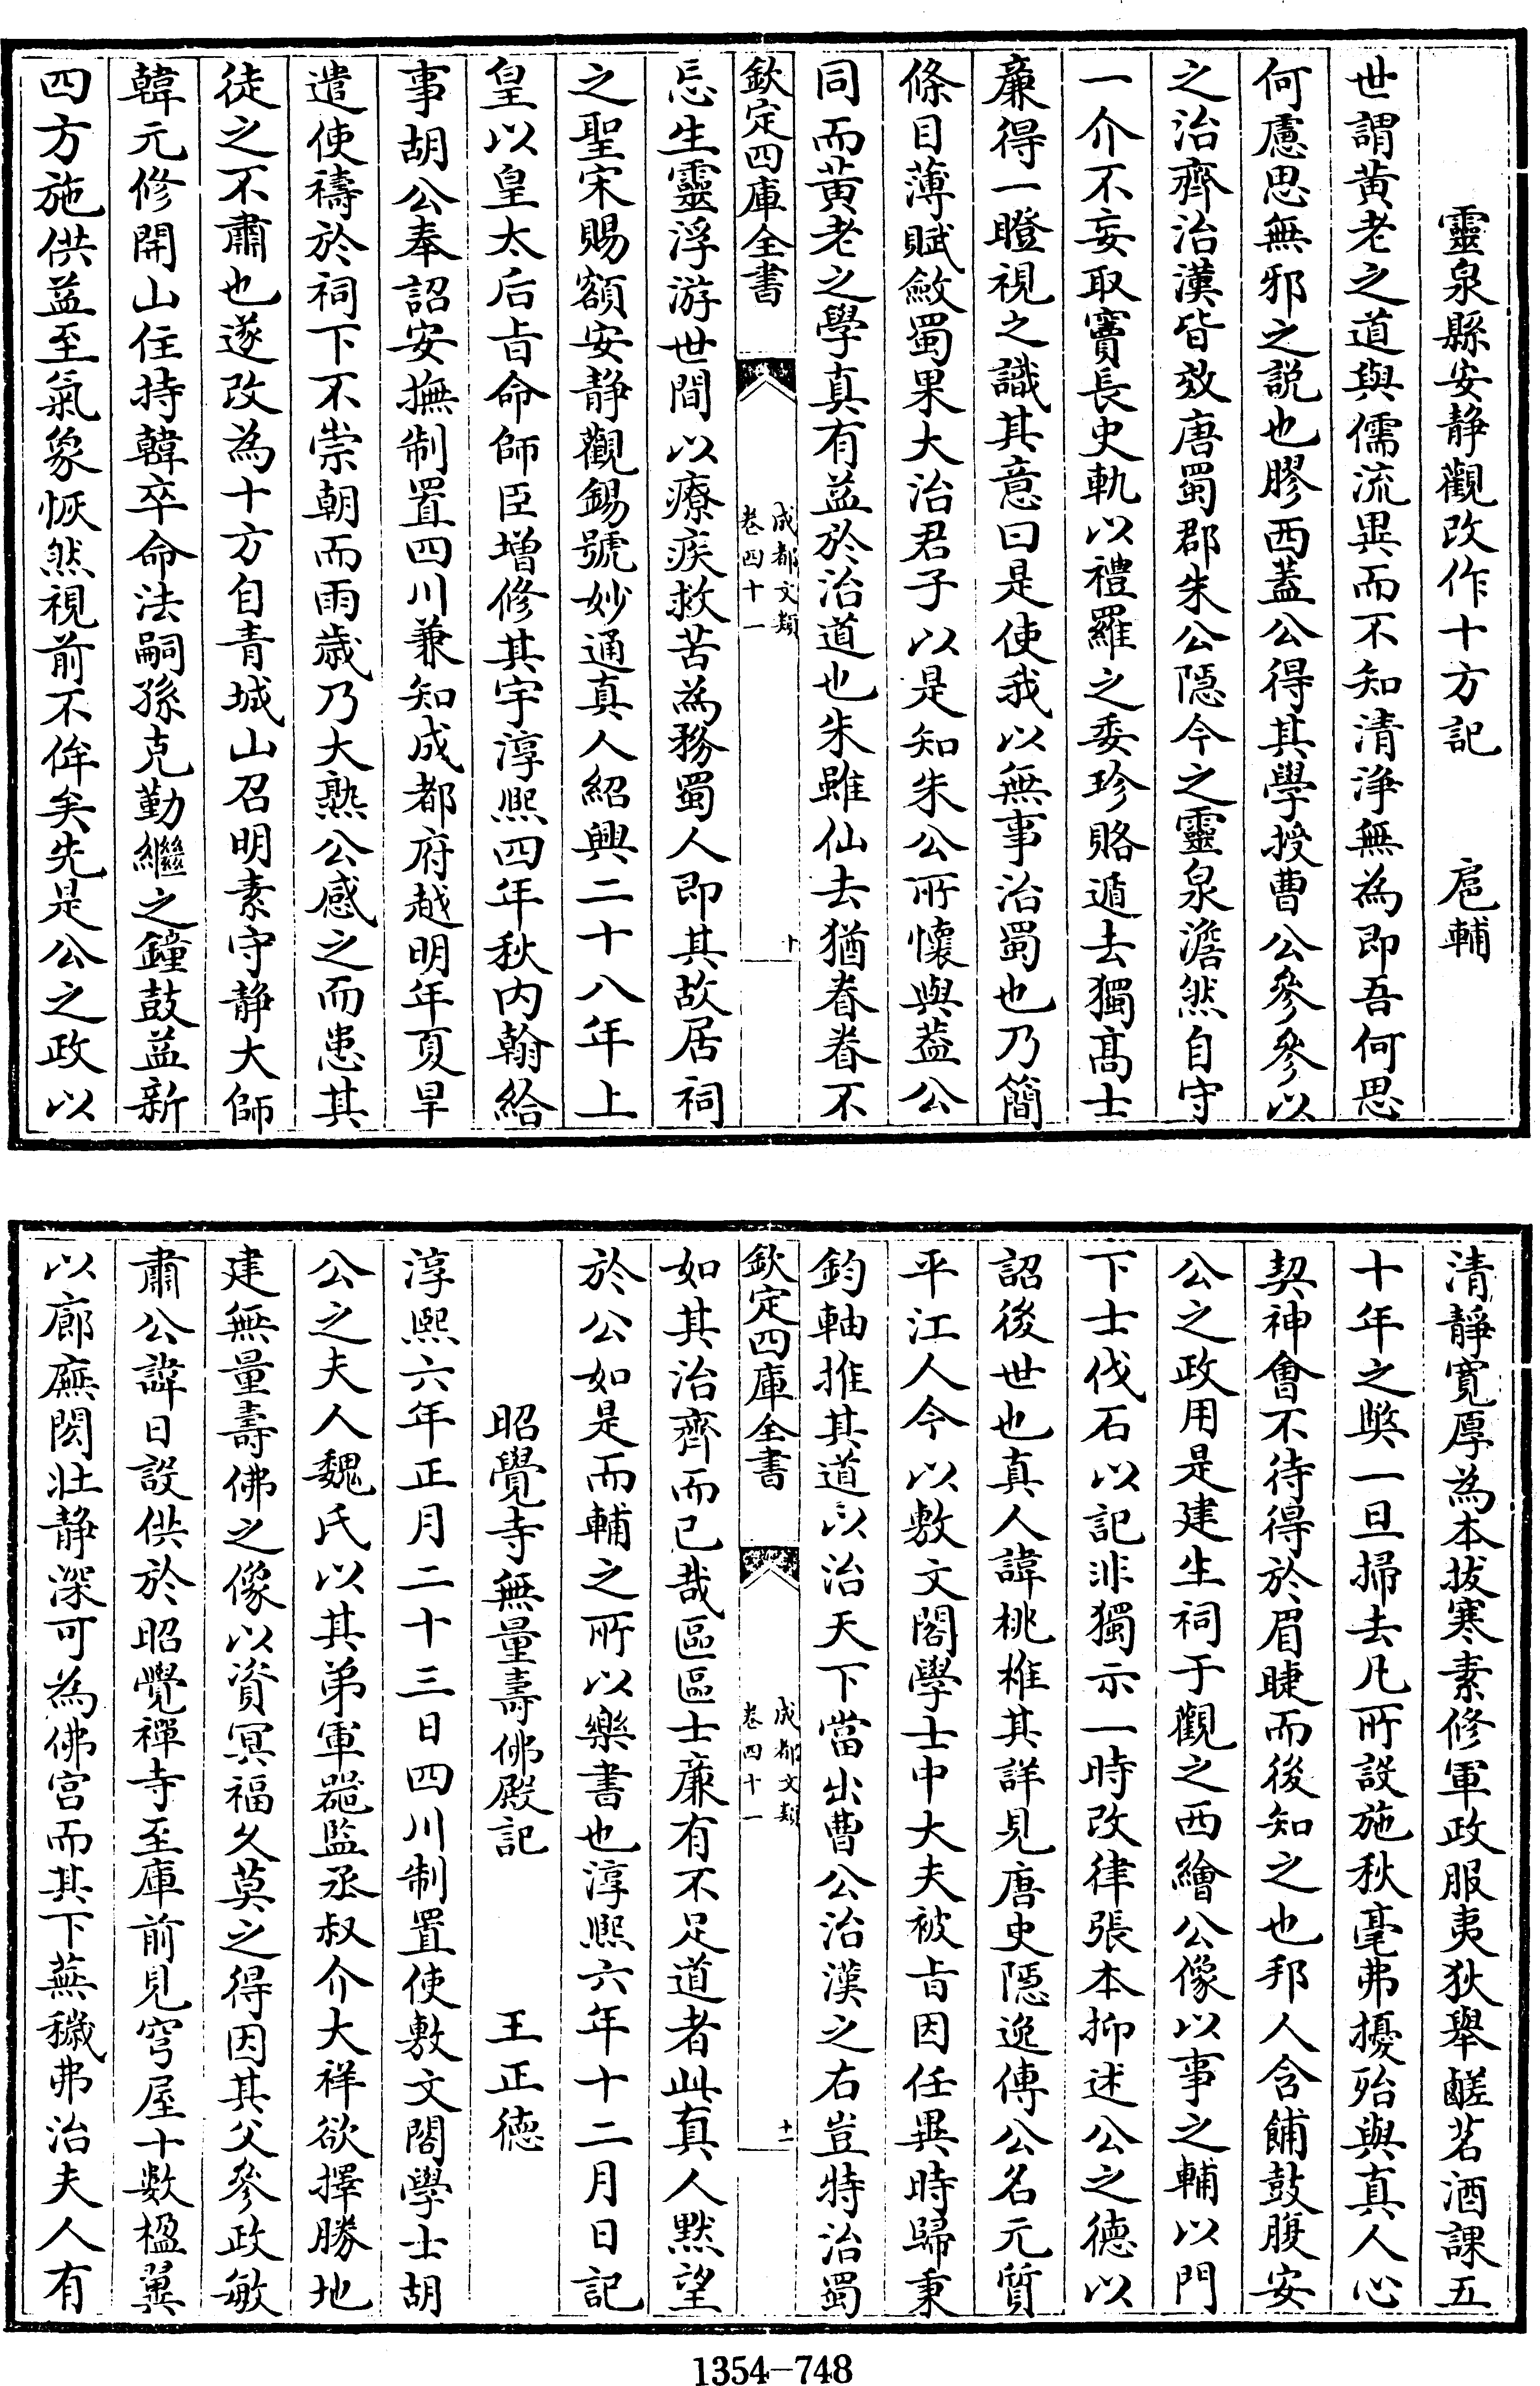 靈泉縣安静觀改作十方記　扈輔
世謂黄老之道與儒流異而不知清淨無為即吾何思
何慮思無邪之説也膠西蓋公得其學授曹公參參以
之治齊治漢皆效唐蜀郡朱公隠今之靈泉澹然自守
一介不妄取竇長史軌以禮羅之委珍賂遁去獨髙士
亷得一瞪視之識其意曰是使我以無事治蜀也乃簡
條目薄賦斂蜀果大治君子以是知朱公所懷與葢公
同而黄老之學真有益於治道也朱雖仙去猶眷眷不
欽定四庫全書　成都文類卷四十一　十
忘生靈浮游世間以療疾救苦為務蜀人即其故居祠
之聖宋賜額安静觀錫號妙通真人紹興二十八年上
皇以皇太后㫖命師臣增修其宇淳熙四年秋内翰給
事胡公奉詔安撫制置四川兼知成都府越明年夏旱
遣使禱於祠下不崇朝而雨歳乃大熟公感之而患其
徒之不肅也遂改為十方自青城山召明素守静大師
韓元修開山住持韓卒命法嗣孫克勤繼之鐘鼓益新
四方施供益至氣象恢然視前不侔矣先是公之政以
清靜寛厚為本拔寒素修軍政服夷狄舉鹺茗酒課五
十年之弊一旦掃去凡所設施秋毫弗擾殆與真人心
契神會不待得於眉睫而後知之也邦人含餔鼓腹安
公之政用是建生祠于觀之西繪公像以事之輔以門
下士伐石以記非獨示一時改律張本抑述公之德以
詔後世也真人諱桃椎其詳見唐史隠逸傳公名元質
平江人今以敷文閣學士中大夫被㫖因任異時歸秉
鈞軸推其道以治天下當出曹公治漢之右豈特治蜀
欽定四庫全書　成都文類卷四十一　十一
如其治齊而已哉區區士亷有不足道者此真人黙望
於公如是而輔之所以樂書也淳熙六年十二月日記
昭覺寺無量壽佛殿記　王正德
淳熙六年正月二十三日四川制置使敷文閣學士胡
公之夫人魏氏以其弟軍器監丞叔介大祥欲擇勝地
建無量壽佛之像以資冥福久莫之得因其父參政敏
肅公諱日設供於昭覺禪寺至庫前見穹屋十數楹翼
以廊廡閎壯静深可為佛宫而其下蕪穢弗治夫人有
1354—748